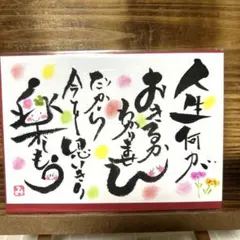 人生何が
おきるか
わかりません
だから
今を思いきり
楽しもう